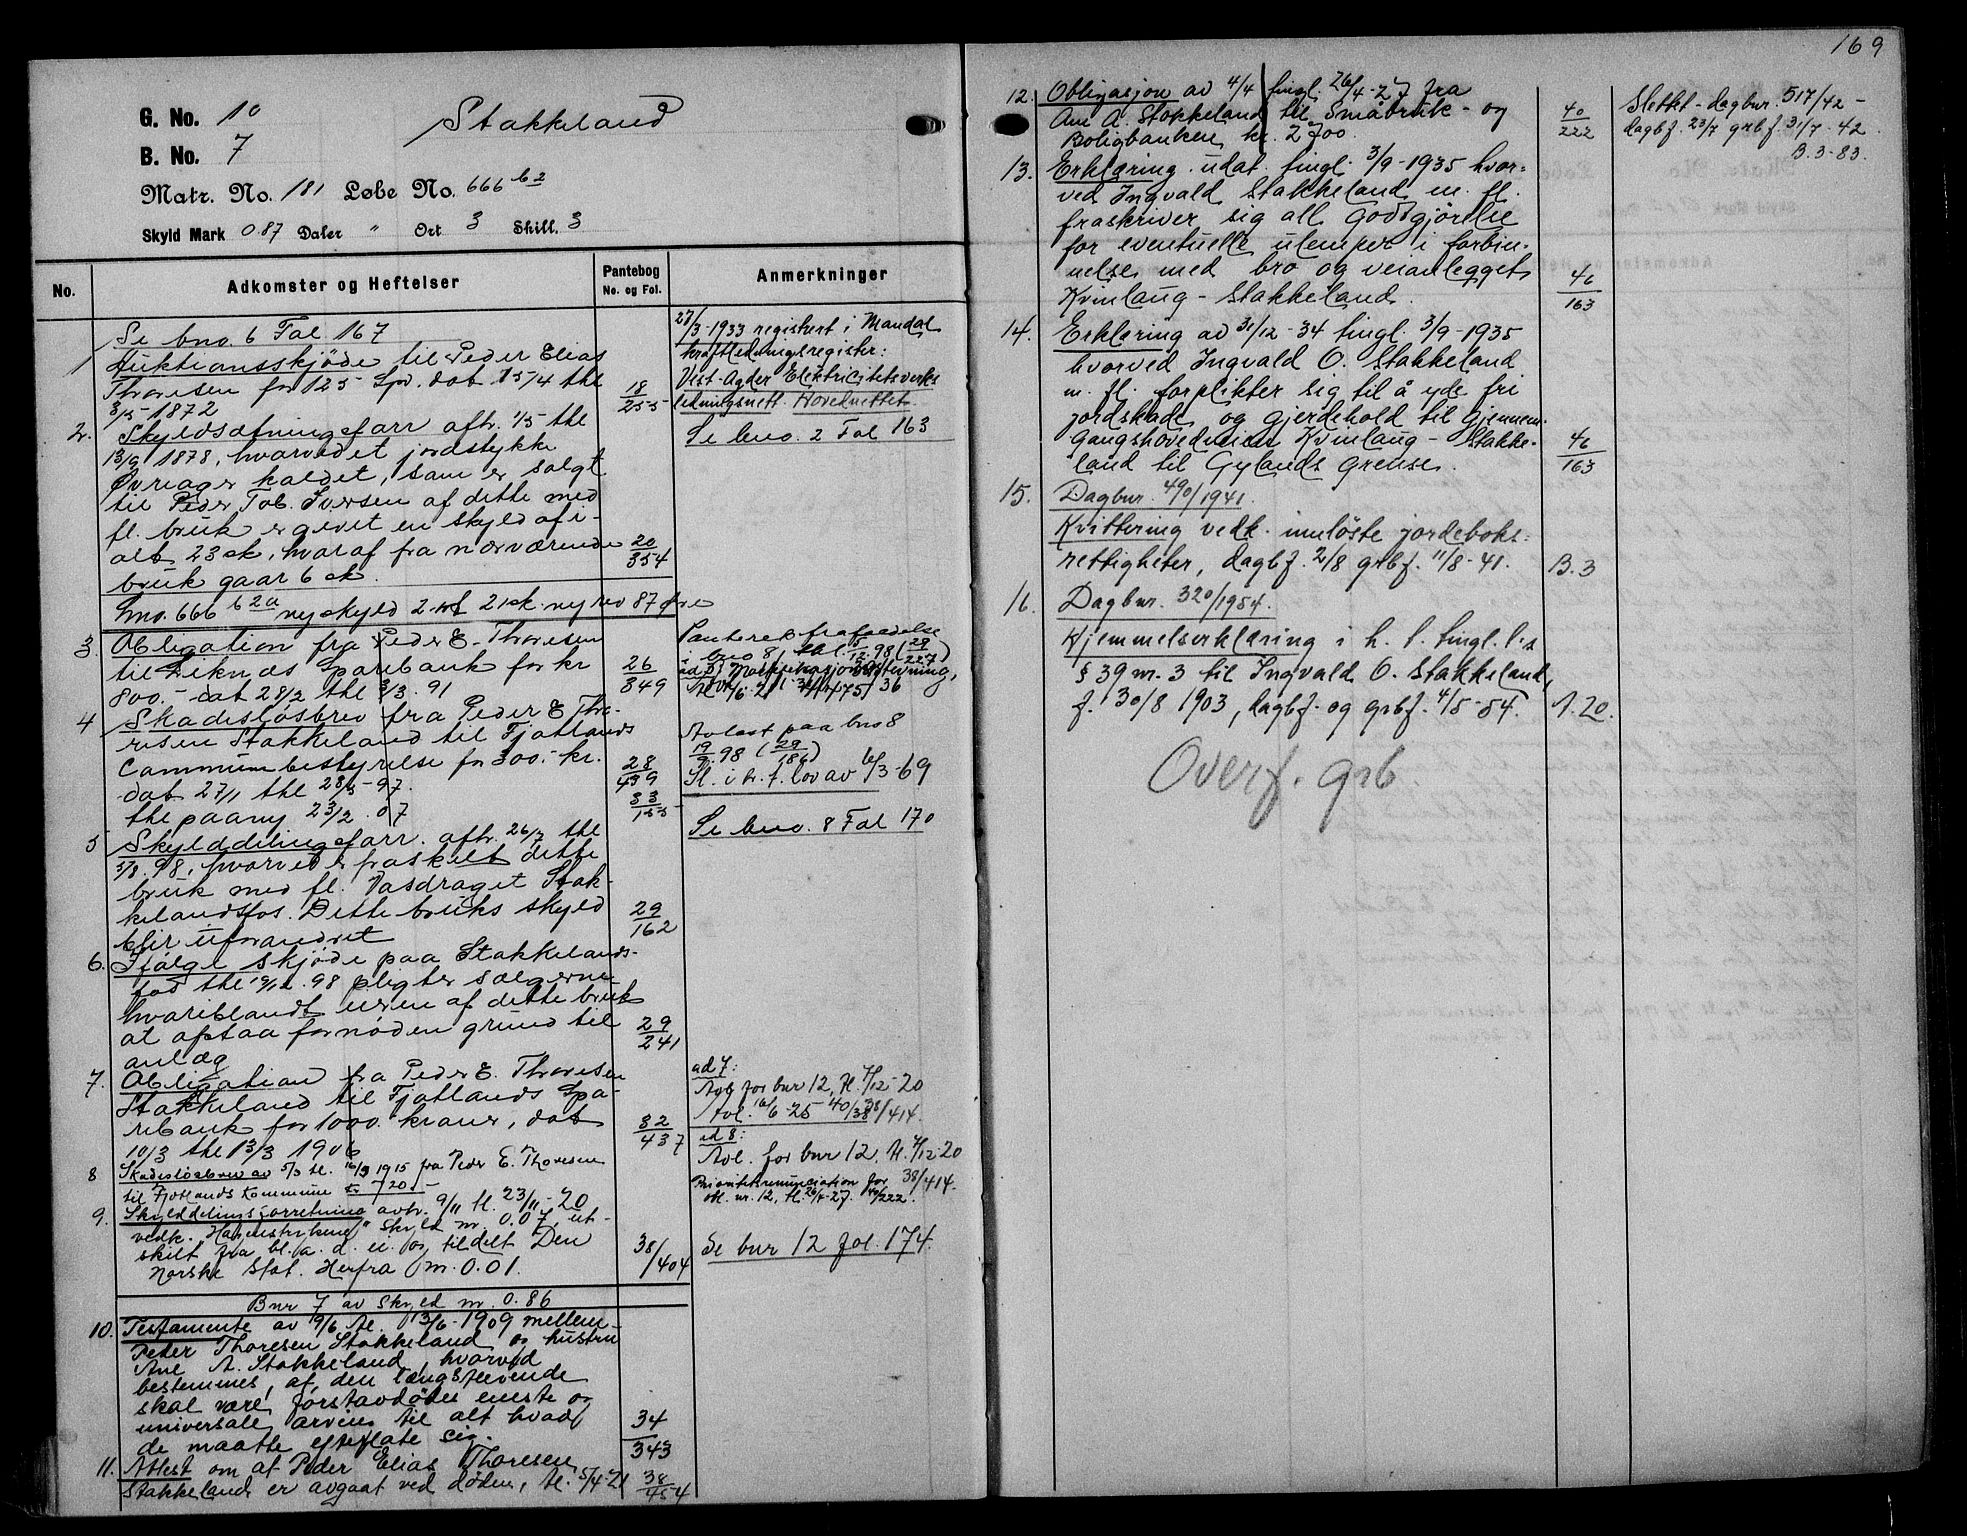 169
G. No. 10
Stakkeland
B. No. 7
Matr. No. 181 Løbe No. 666 b2
Skyld Mark 0.87 Daler " Ort 3 Skill. 3
No.
Adkomster og Heftelser
Pantebog
No. og Fol.
Anmerkninger
Se bno. 6 Fol 167
1 Auktionsskjøde til Peder Elias
Thoresen for 125 Spd. dat. 15/4 thl
3/5 1872
18/255
2. Skyldsætningsforr. afh. 1/5 thl
13/9 1878, hvorved et jordstykke
Øvreager kaldet, som er solgt
til Peder Tob. Iversen af dette med
fl. bruk er givet en skyld af i-
alt 23 sk, hvoraf fra nærværende
bruk gaar 6 sk.
20/354
Lno. 666 b2a ny skyld 2 ort 21 sk. ny rev 87 øre
3. Obligation fra Peder E. Thoresen
til Liknes Sparebank for kr
800.- dat 28/2 thl 3/3. 91
26/849
4 Skadesløsbrev fra Peder E Tho-
resen Stakkeland til Fjotlands
Communebestyrelse for 300.- kr.
dat 27/1 thl 28/5-97.
thl paany 23/2. 07
28/439
33/155
5 Skylddelingsforr. afh. 26/7 thl
5/8. 98, hvorved er fraskilt dette
bruk med fl. Vasdraget Stak-
kelandsfos. Dette bruks skyld
blir uforandret
29/162
6. Ifølge skjøde paa Stakkelands-
fos thl 19/12. 98 pligter sælgerne
hvoriblandt eieren af dette bruk
at afstaa fornøden grund til
anlæg
29/241
7. Obligation fra Peder E. Thoresen
Stakkeland til Fjotlands Spa-
rebank for 1000 kroner, dat
10/3 thl 13/3 1906
32/437
8 Skadesløsbrev av 5/3 tl. 16/3 1915 fra Peder E. Thoresen
til Fjotlands kommune kr 720.-
9. Skylddelingsforretning avh. 9/11 tl. 23/11-20
vedk. " skyld m. 0.07, ut-
skilt fra bl. a. d. e. og tildelt Den
Norske Stat. Herfra m. 0.01.
38/404
Bnr 7 av skyld m. 0.86
10. Testamente av 9/6 tl. 13/6-1909 mellem
Peder Thoresen Stakkeland og hustru
Ane A. Stakkeland, hvorved
bestemmes, at den længstlevende
skal være førstavdødes eneste og
universale arving til alt hvad
de maatte efterlate sig.
34/343
11. Attest om at Peder Elias Thoresen
Stakkeland er avgaat ved døden, tl. 5/4-21
38/454
27/3-1933 registrert i Mandal
kraftledningsregister:
Vest-Agder Elektricitetsverks
ledningsnett. Hovednettet.
Se bno. 2 Fol 163
Panterets frafaldelse
i bno 8, thl. 15/12. 98 (29/227)
Avlest paa bno 8
19/9. 98 (29/186)
Sl. i h. t. lov av 6/3-69
Se bno. 8 Fol 170
ad 7:
Avl. for bnr 12, tl. 7/12-20
Avl. 16/6-25 40/38 38/414
ad 8:
Avl. for bnr 12, tl. 7/12-20
38/414.
Prioritetsrenunciation for
obl. nr. 12, tl. 26/4-27. 40/222.
Se bnr 12 fol. 174.
12. Obligasjon av 4/4 tingl. 26/4-27 fra
Ane A. Stakkeland til Småbruk- og
Boligbanken kr. 2700.
40/222
Slettet - dagbnr. 517/42 -
dagbf. 23/7 grbf. 31/7-42.
B.3-83.
13. Erklæring udat. tingl. 3/9-1935 hvor-
ved Ingvald Stakkeland m. fl.
fraskriver sig all godtgjörelse
for eventuelle ulemper i forbin-
nelse med bro og veianlegget
Kvinlaug - Stakkeland.
46/163
14. Erklæring av 31/12-34 tingl. 3/9-1935
hvorved Ingvald O. Stakkeland
m. fl. forplikter sig til å yde fri
jordskade og gjerdehold til gjennem-
gangshovedveien Kvinlaug - Stakke-
land til Gylands grense.
46/163
15. Dagbnr. 490/1941.
Kvittering vedk. innlöste jordeboks-
rettigheter, dagbf. 2/8 grbf. 11/8-41.
B.3
16. Dagbnr. 320/1954.
Hjemmelserklæring i h. t. tingl. l.s
§ 39 nr. 3 til Ingvald O. Stakkeland,
f. 30/8 1903, dagbf. og grbf. 4/5-54.
A.20.
Overf. grb.